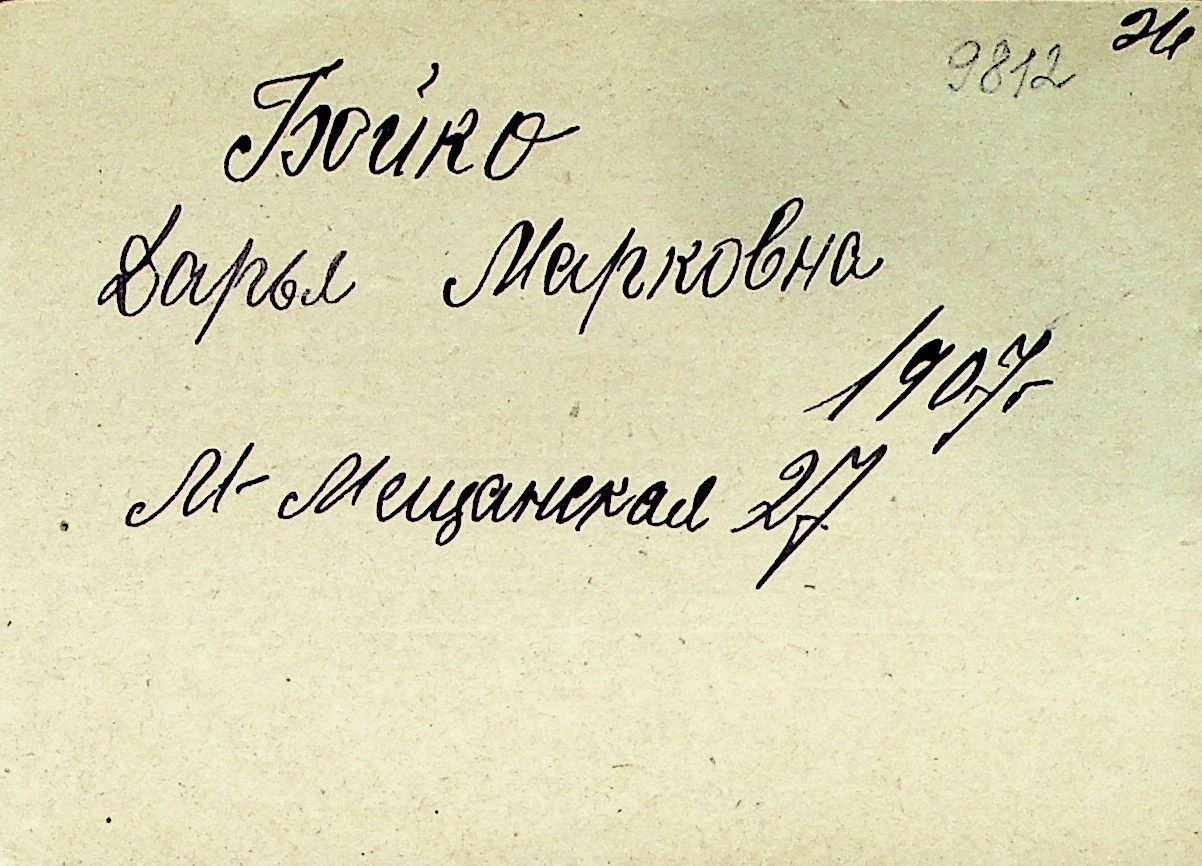 9812
Бойко
Дарья Марковна
1907г
М-Мещанская 27